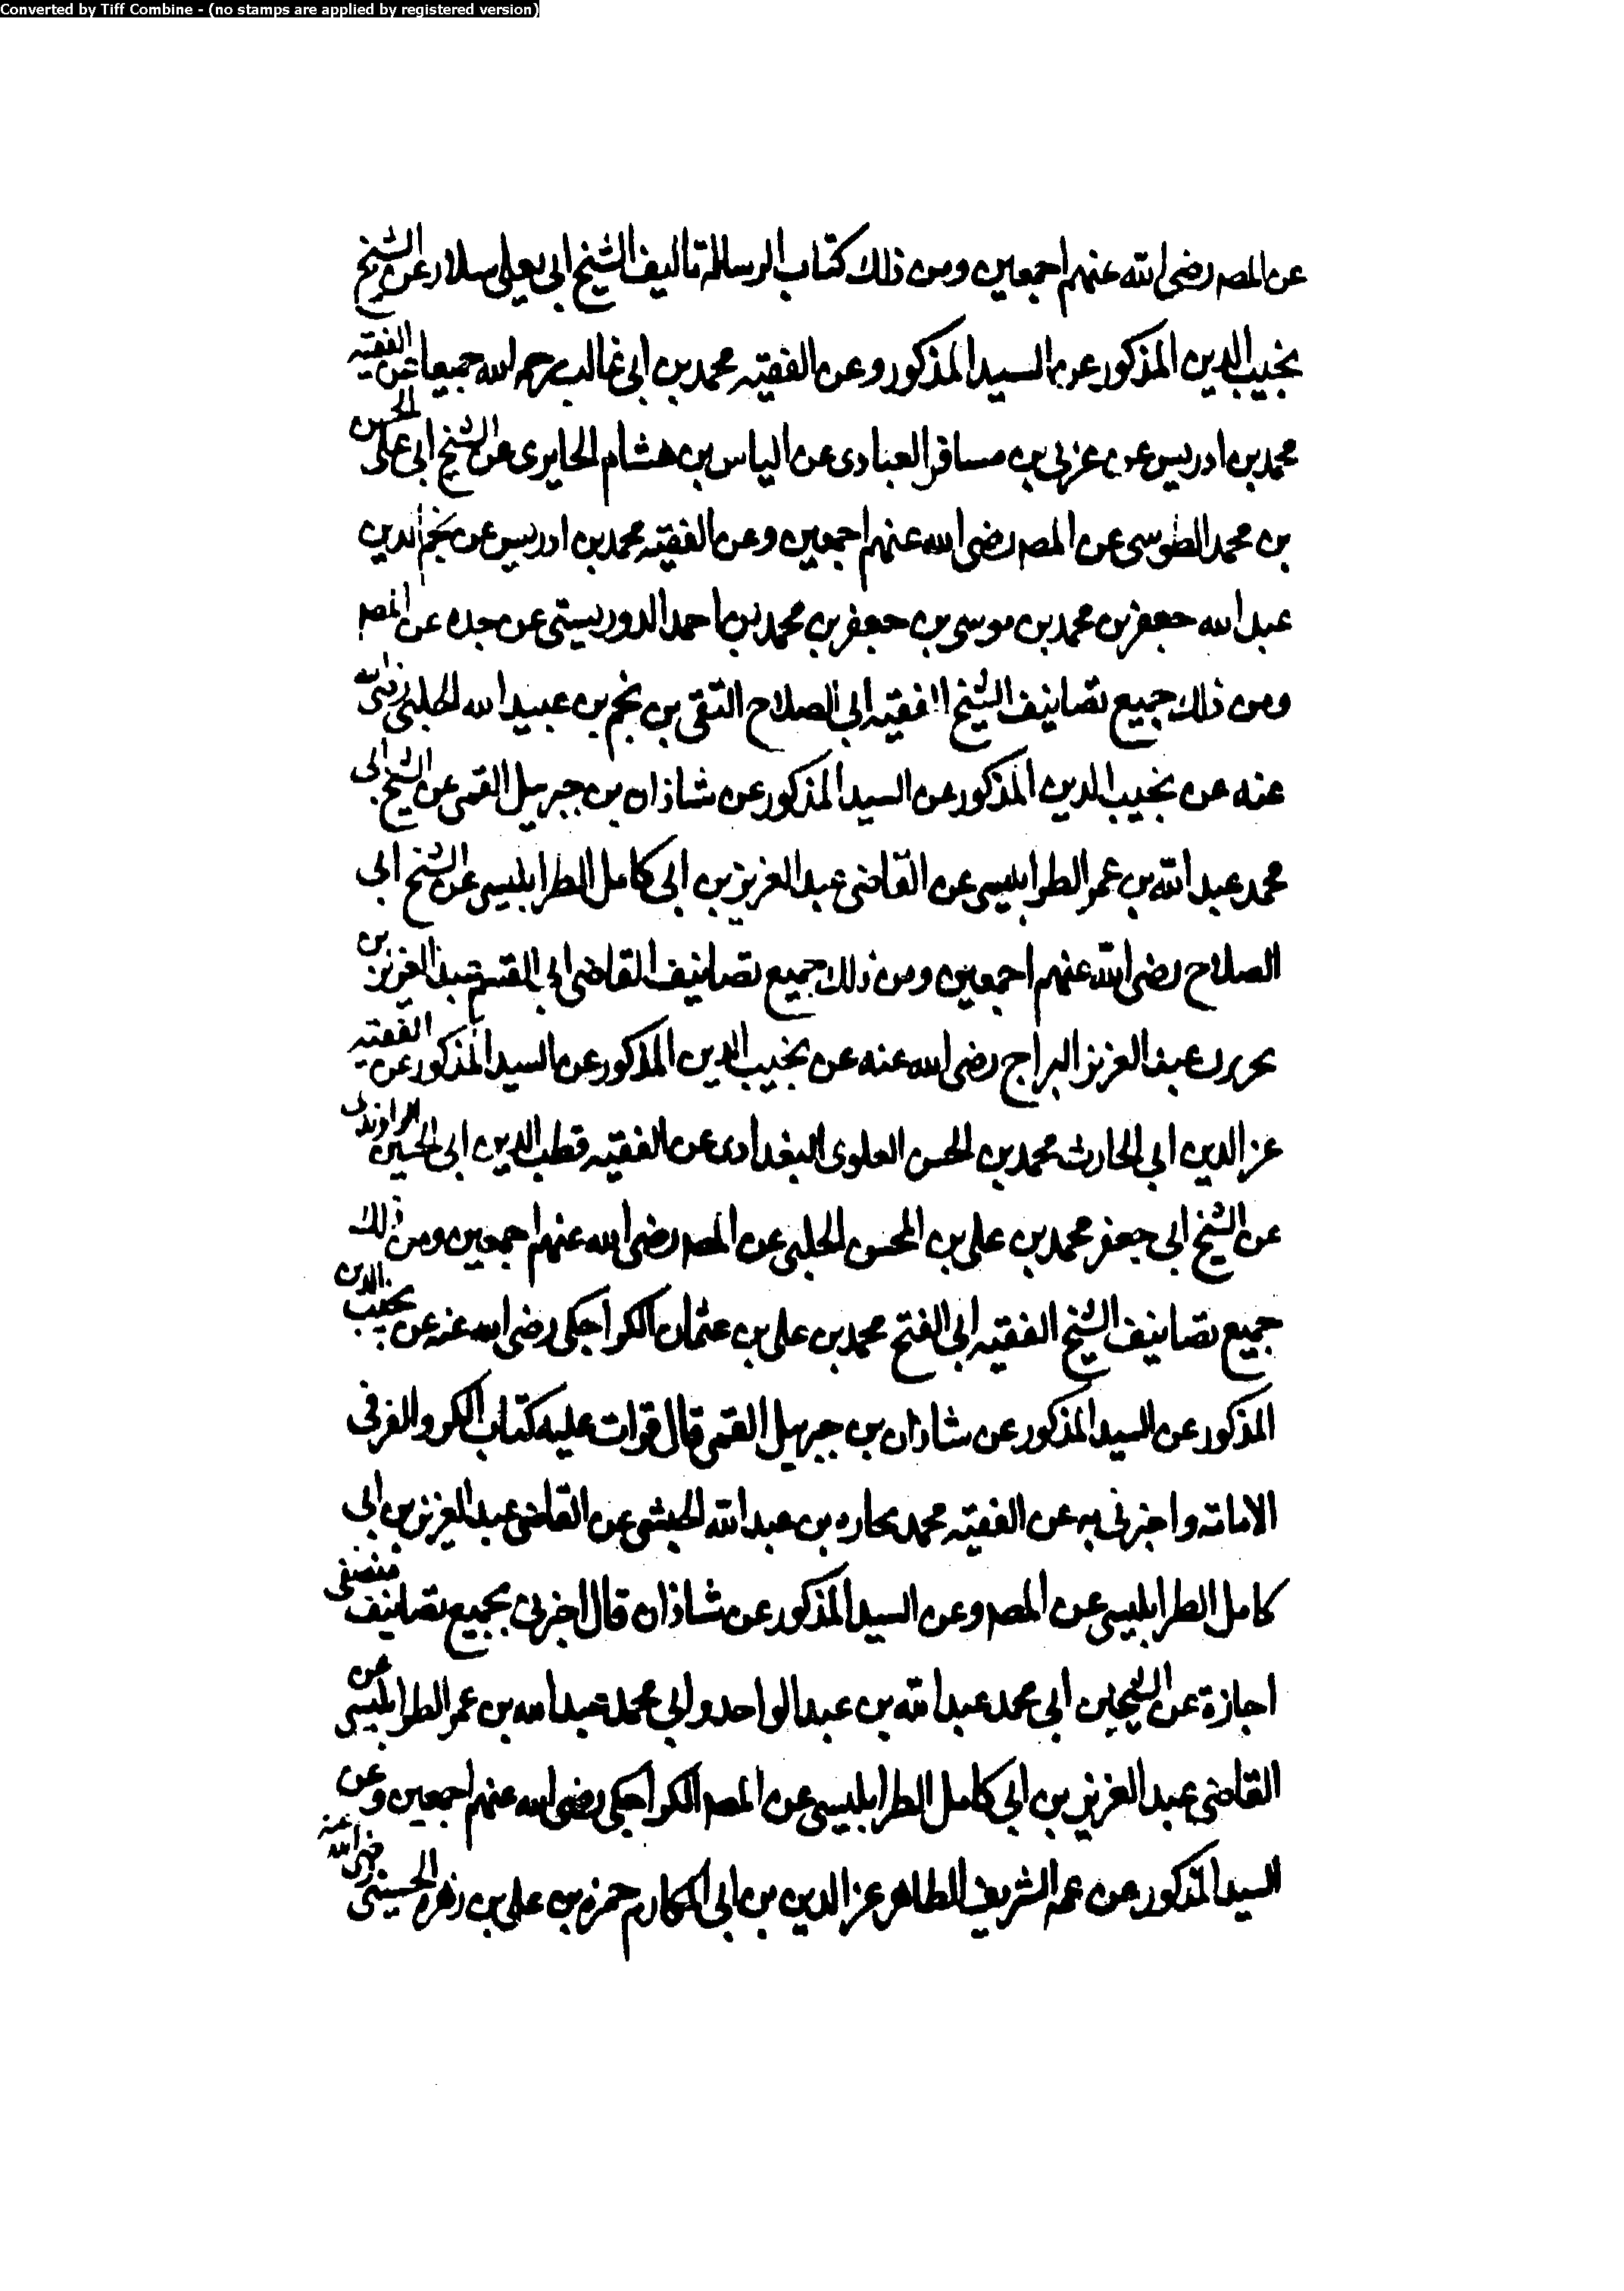 Converted by Tiff Combine - (no stamps are applied by registered version)
عن المصـ رضى الله عنهم اجمعين ومن ذلك كتاب الرسالة تاليف الشيخ ابى يعلى سلار عن الشيخ
نجيب الدين المذكور عن السيد المذكور وعن الفقيه محمد بن ابى غالب رحمه الله جميعا عن الفقيه
محمد بن ادريس عن عربى بن مسافر العبادى عن الياس بن هشام الحايرى عن الشيخ ابى على الحسن
بن محمد الطوسى عن المصـ رضى الله عنهم اجمعين وعن الفقيه محمد بن ادريس عن نجم الدين
عبد الله جعفر بن محمد بن موسى بن جعفر بن محمد بن احمد الدوريستى عن جده عن المصـ
ومن ذلك جميع تصانيف الشيخ الفقيه ابى الصلاح التقى بن نجم بن عبيد الله الحلبى رضى الله
عنه عن نجيب الدين المذكور عن السيد المذكور عن شاذان بن جبرييل القمى عن الشيخ ابى
محمد عبد الله بن عمر الطرابلسى عن القاضى عبد العزيز بن ابى كامل الطرابلسى عن الشيخ ابى
الصلاح رضى الله عنهم اجمعين ومن ذلك جميع تصانيف القاضى ابى القسم عبد العزيز بن
نحرير بن عبد العزيز البراج رضى الله عنه عن نجيب الدين المذكور عن السيد المذكور عن الفقيه
عز الدين ابى الحارث محمد بن الحسن العلوى البغدادى عن الفقيه قطب الدين ابى الحسين الراوندى
عن الشيخ ابى جعفر محمد بن على بن المحسن الحلبى عن المصـ رضى الله عنهم اجمعين ومن ذلك
جميع تصانيف الشيخ الفقيه ابى الفتح محمد بن على بن عثمان الكراجكى رضى الله عنه عن نجيب الدين
المذكور عن السيد المذكور عن شاذان بن جبرييل القمى قال قرات عليه كتاب الكر والفر فى
الامامة واخبرنى به عن الفقيه محمد بن عبد الله الحبشى عن القاضى عبد العزيز بن ابى
كامل الطرابلسى عن المصـ وعن السيد المذكور عن شاذان قال اخبرنى بجميع تصانيف
اجازة عن الشيخين ابى محمد عبد الله بن عبد الواحد وابى محمد عبد الله بن عمر الطرابلسى عن
القاضى عبد العزيز بن ابى كامل الطرابلسى عن المصـ الكراجكى رضى الله عنهم اجمعين وعن
السيد المذكور عن عمه الشريف الطاهر عز الدين بن ابى المكارم حمزة بن على بن زهرة الحسينى رضى الله عنه